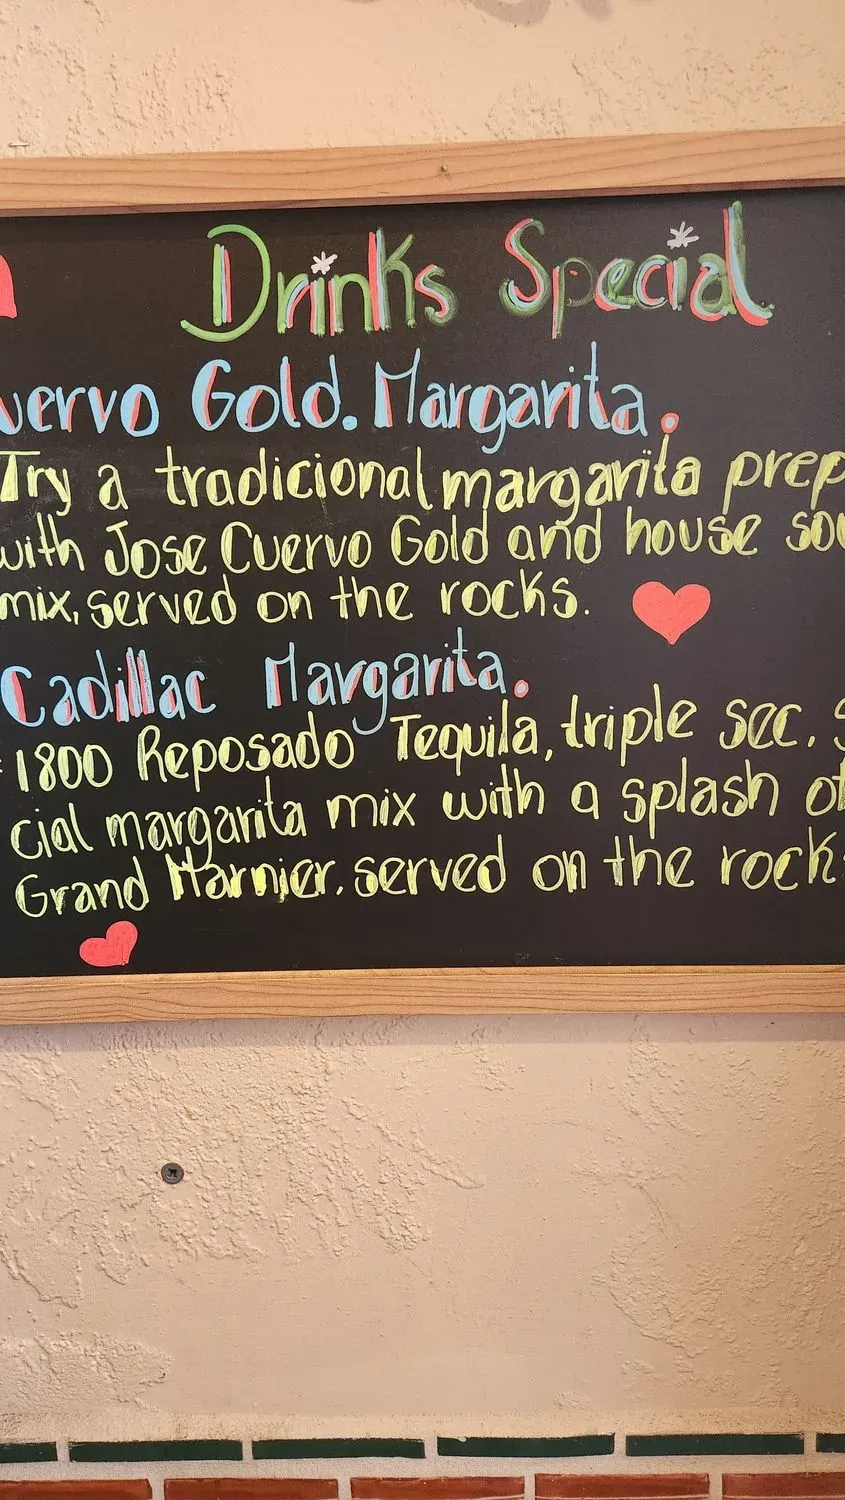 Drinks Special
uervo Gold. Margarita.
Try a tradicional margarita prep
with Jose Cuervo Gold and house sou
mix, served on the rocks.
Cadillac Margarita.
1800 Reposado Tequila, triple sec. S
cial margarita mix with a splash of
Grand Marnier. served on the rock